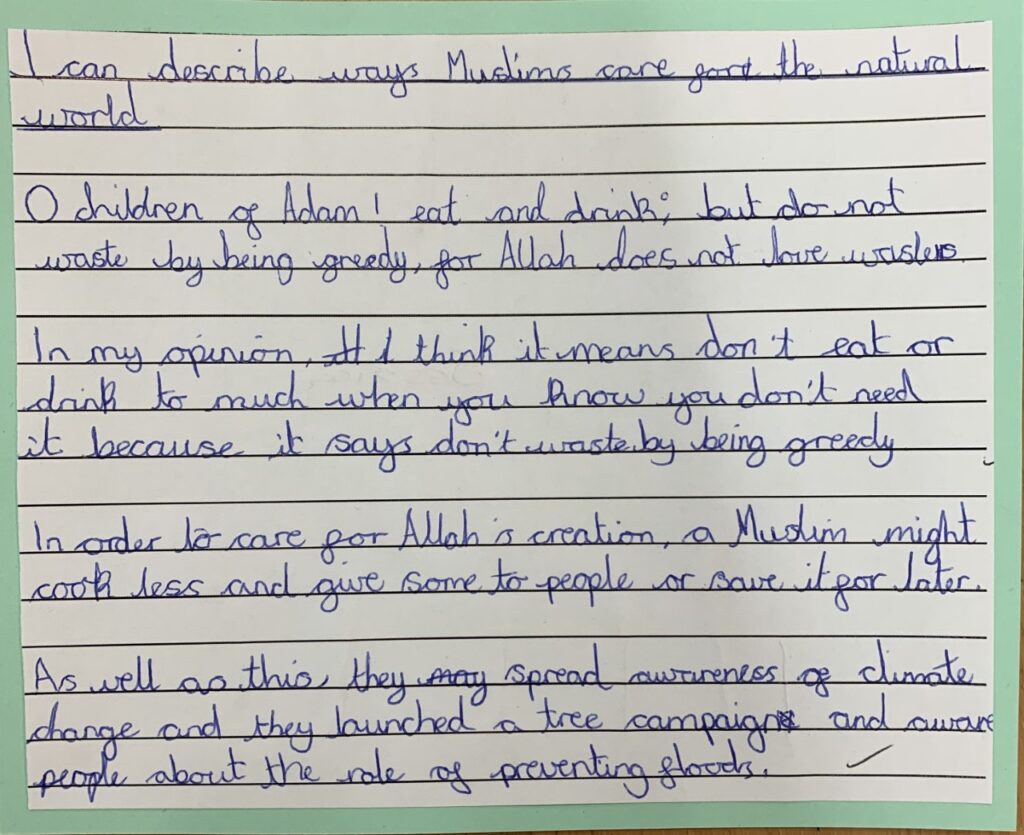 I can describe ways Muslims care fort the natural
world
O children of Adam! eat and drink; but do not
waste by being greedy, for Allah does not love wasters.
In my opinion, I think it means don't eat or
drink to much when you know you don't need
it because it says don't waste by being greedy
In order to care for Allah's creation, a Muslim might
cook less and give some to people or save it for later.
As well as this, they may spread awareness of climate
change and they launched a tree campaign and aware
people about the role of preventing floods.